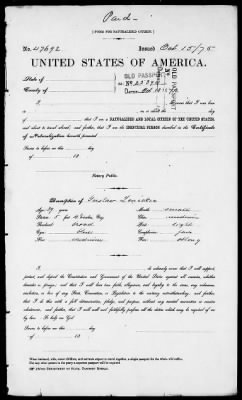 Paid
[FORM FOR NATURALIZED CITIZEN.]
No. 47692 Issued Oct. 15/75
UNITED STATES OF AMERICA.
State of
County of
OLD PASSPORT
OLD PASSPORT
I, swear that I was born
in on or about the day
of , that I am a NATURALIZED AND LOYAL CITIZEN OF THE UNITED STATES,
and about to travel abroad; and further, that I am the IDENTICAL PERSON described in the Certificate
of Naturalization herewith presented.
Sworn to before me this day
of 18
Notary Public.
Description of Gustav
Age: 39 years Mouth: small
Stature: 5 feet inches, Eng. Chin: medium
Forehead: broad Hair: light
Eyes: blue Complexion: fair
Nose: medium Face: oblong
I, do solemnly swear that I will support,
protect, and defend the Constitution and Government of the United States against all enemies, whether
domestic or foreign; and that I will bear true faith, allegiance, and loyalty to the same, any ordinance,
resolution, or law of any State, Convention, or Legislature to the contrary notwithstanding; and further,
that I do this with a full determination, pledge, and purpose, without any mental reservation or evasion
whatsoever; and further, that I will well and faithfully perform all the duties which may be required of me
by law: So help me God.
Sworn to before me this day
of 18